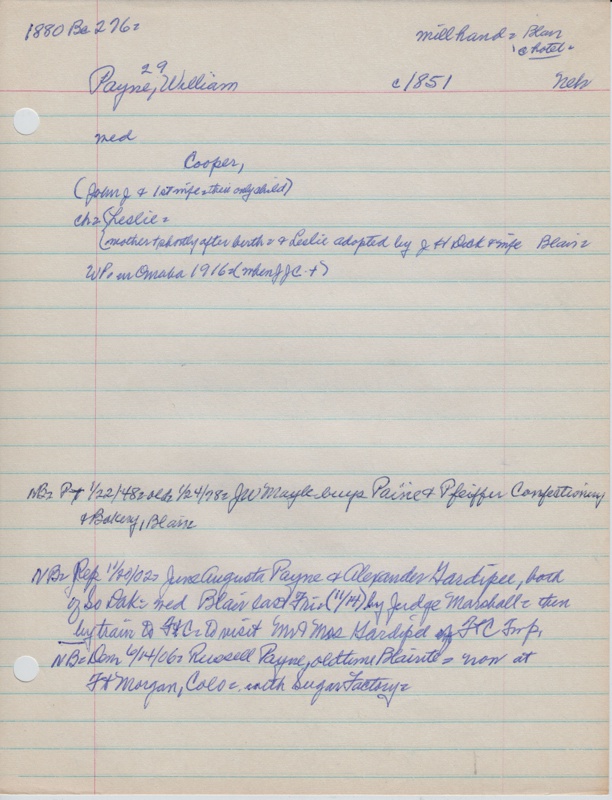 1880 Ba 276=
millhand = Blair
@ hotel =
29
Payne, William c1851 Neb
med
Cooper,
(John J & 1st wife = their only child)
ch = (Leslie =
(mother + shortly after birth = & Leslie adopted by J H Dock & wife Blair =
WP in Omaha 1916 (when JJC +)
NB = PT 1/22/48 = old = 1/24/78 = JW Mayle buys Paine & Pfeiffer Confectionery
& Bakery, Blair
NB = Rep 11/20/02 = June Augusta Payne & Alexander Gardipee, both
of So Dak = med Blair last Fri = (11/14) by Judge Marshall = then
by train to FtC = to visit Mr & Mrs Gardipe of FtC Twp,
NB = Dem 6/14/06 = Russell Payne, oldtime Blairite = now at
Ft Morgan, Colo = with Sugar Factory =